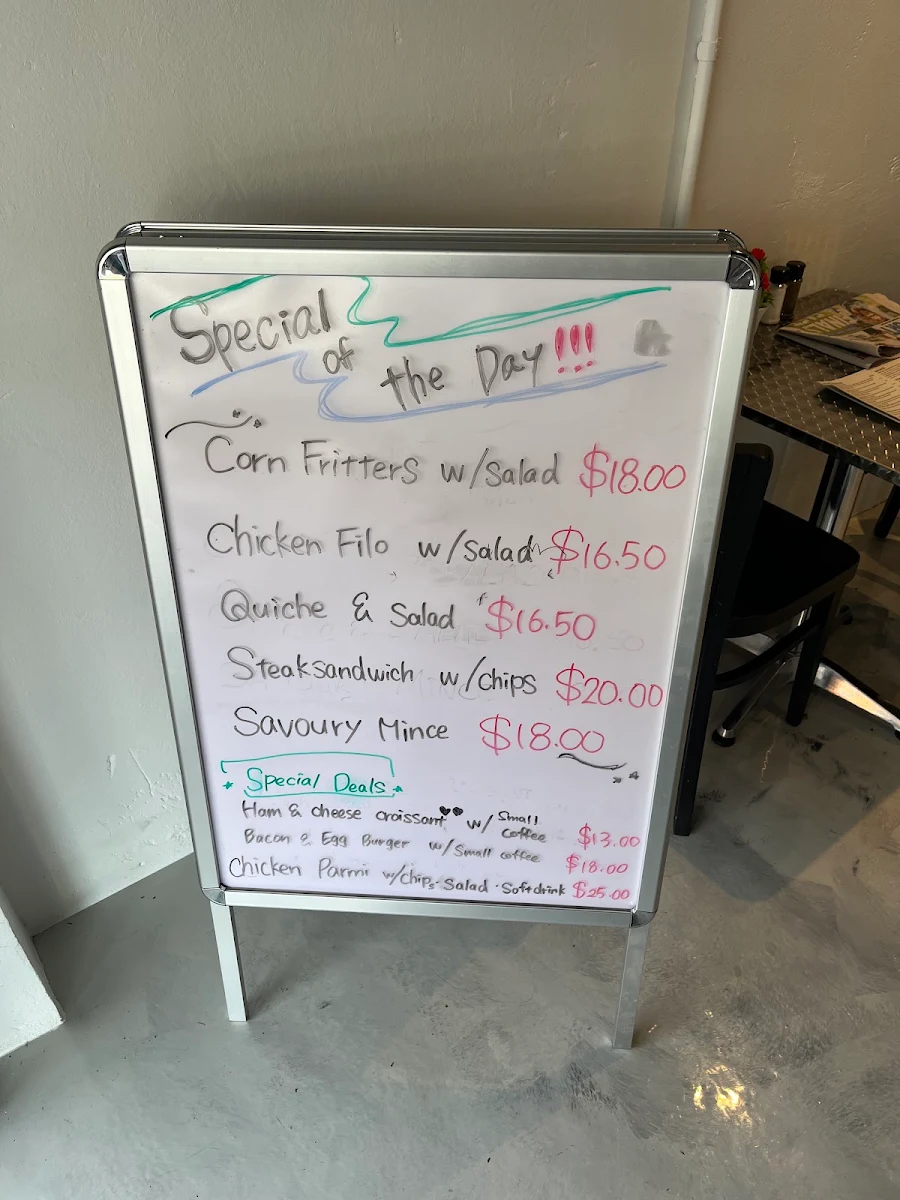 Special of the Day!!!
Corn Fritters w/Salad $18.00
Chicken Filo w/salad $16.50
Quiche & Salad $16.50
Steaksandwich w/chips $20.00
Savoury Mince $18.00
Special Deals
Ham & cheese croissant w/ Small coffee $13.00
Bacon & Egg Burger w/Small coffee $18.00
Chicken Parmi w/chips · Salad · Softdrink $25.00